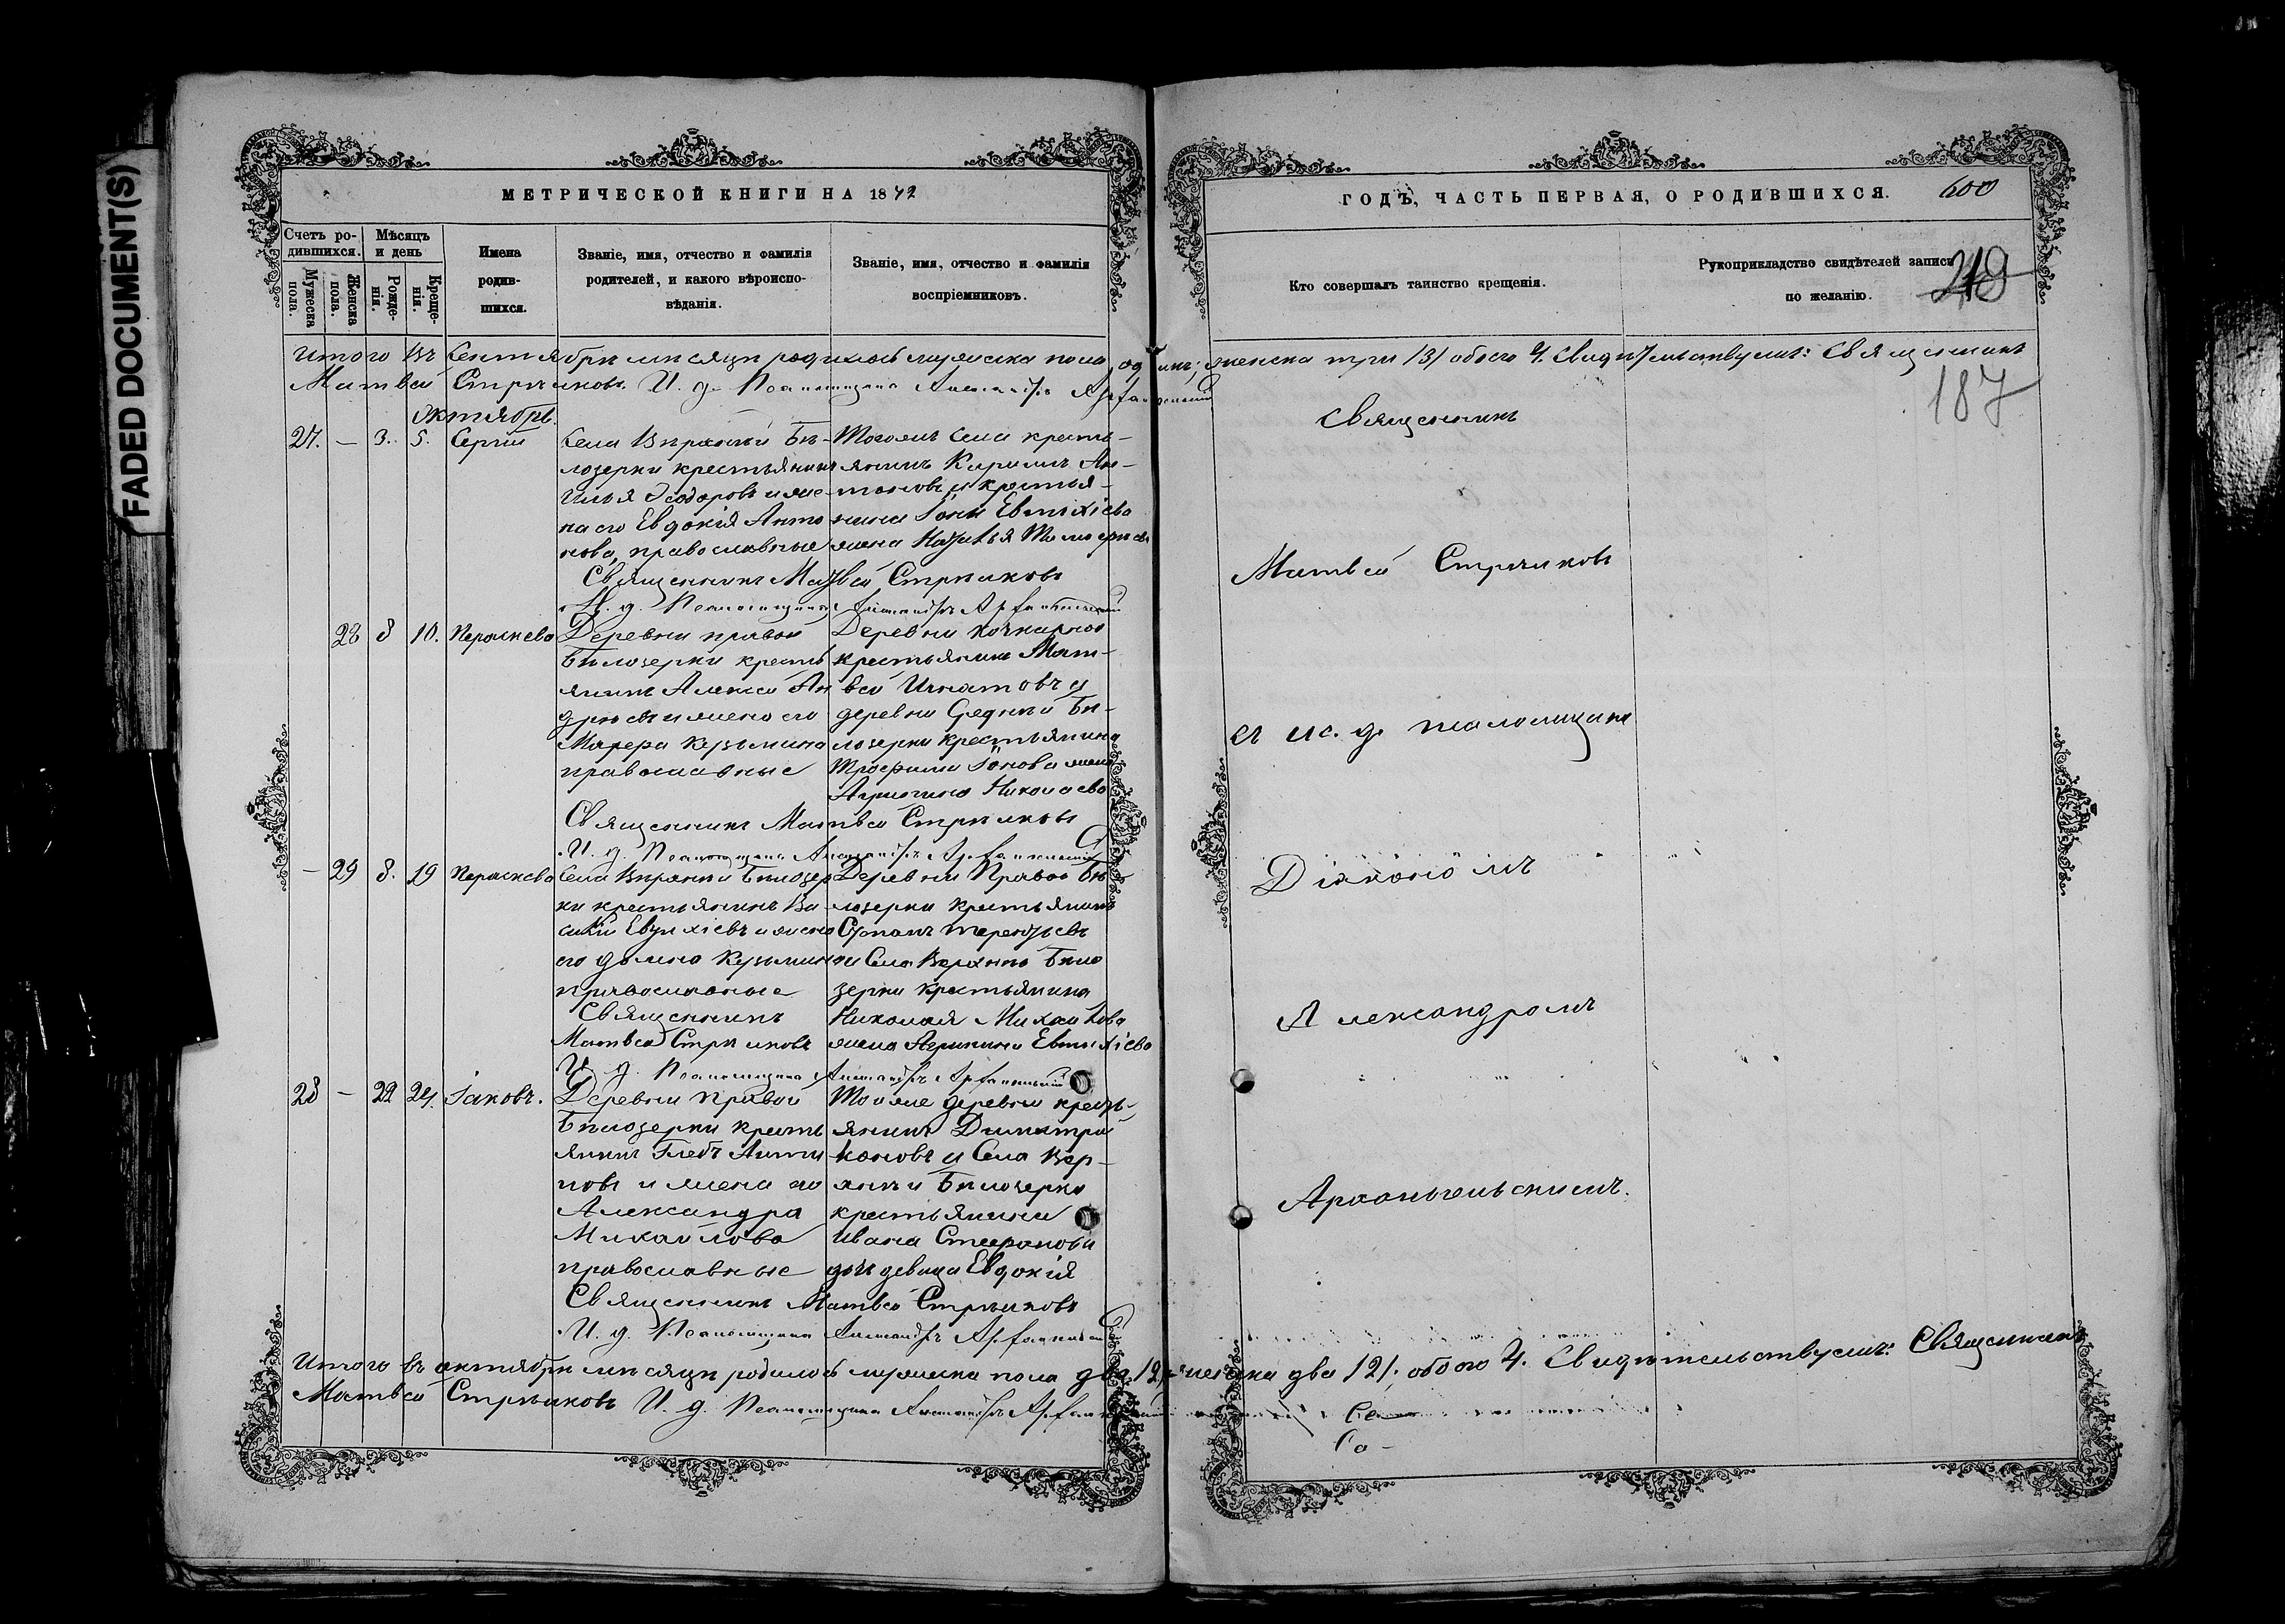 FADED DOCUMENT(S)
МЕТРИЧЕСКОЙ КНИГИ НА 1872
Счетъ ро-
дившихся.
Мужеска пола.
Женска пола.
Мѣсяцъ
и день
Рожде-
нія.
Креще-
нія.
Имена
родив-
шихся.
Званіе, имя, отчество и фамилія
родителей, и какого вѣроиспо-
вѣданія.
Званіе, имя, отчество и фамилія
воспріемниковъ.
Итого въ Сентябрѣ мѣсяцѣ родилось мужеска пола одинъ, женска три /3/ обоего 4. Свидѣтельствуемъ: Священникъ
Матвей Стрѣлковъ И. д. Псаломщика Александръ Архангельскій
Октябрь
27. — 3. 5. Сергій
Села Верхней Бѣ-
лозерки крестьянинъ
Илья Ѳеодоровъ и же-
на его Евдокія Анто
нова, православные
Тогоже Села кресть-
янинъ Кирилъ Ан-
тоновъ и крестья-
нина Іоны Евтихіева
жена Наталья Тимоѳеева
Священникъ Матвей Стрѣлковъ
И. д. Псаломщика Александръ Архангельскій
28 8 10. Параскева
Деревни правой
Бѣлозерки кресть
янинъ Алексей Ан
дреевъ и жена его
Марѳра Кузьмина
православные
Деревни
крестьянинъ Мат-
вей Игнатовъ и
деревни Средней Бѣ-
лозерки крестьянина
Трофима Іонова жена
Николаева
Священникъ Матвей Стрѣлковъ
И. д. Псаломщика Александръ Архангельскій
— 29 8. 19 Параскева
Села Верхней Бѣлозер
ки крестьянинъ Ва-
силій Евтихіевъ и жена
его Домна Кузьмина
православные
Деревни Правой Бѣ
лозерки крестьянинъ
Степанъ Терентьевъ
и Села Верхней Бѣло
зерки крестьянина
Николая Михайлова
жена Агрипина Евтихіева
Священникъ
Матвей Стрѣлковъ
И. д. Псаломщика Александръ Архангельскій
28 — 22 24. Іаковъ.
Деревни правой
Бѣлозерки кресть
янинъ Глебъ Анти
повъ и жена его
Александра
Михайлова
православные
Тойже деревни кресть-
янинъ Димитрій
и Села Вер-
хней Бѣлозерки
крестьянина
Ивана Стефанова
дочь девица Евдокія
Священникъ Матвей Стрѣлковъ
И. д. Псаломщика Александръ Архангельскій
Итого въ октябрѣ мѣсяцѣ родилось мужеска пола два /2/, женска два /2/. обоего 4. Свидѣтельствуемъ: Священникъ
Матвей Стрѣлковъ И. д. Псаломщика Александръ Архангельскій
ГОДЪ, ЧАСТЬ ПЕРВАЯ, О РОДИВШИХСЯ.
600
Кто совершалъ таинство крещенія.
Рукоприкладство свидѣтелей записи
по желанію.
219
187
Священникъ
Матвей Стрѣлковъ
съ ис. д. псаломщика
Діакономъ
Александромъ
Архангельскимъ.